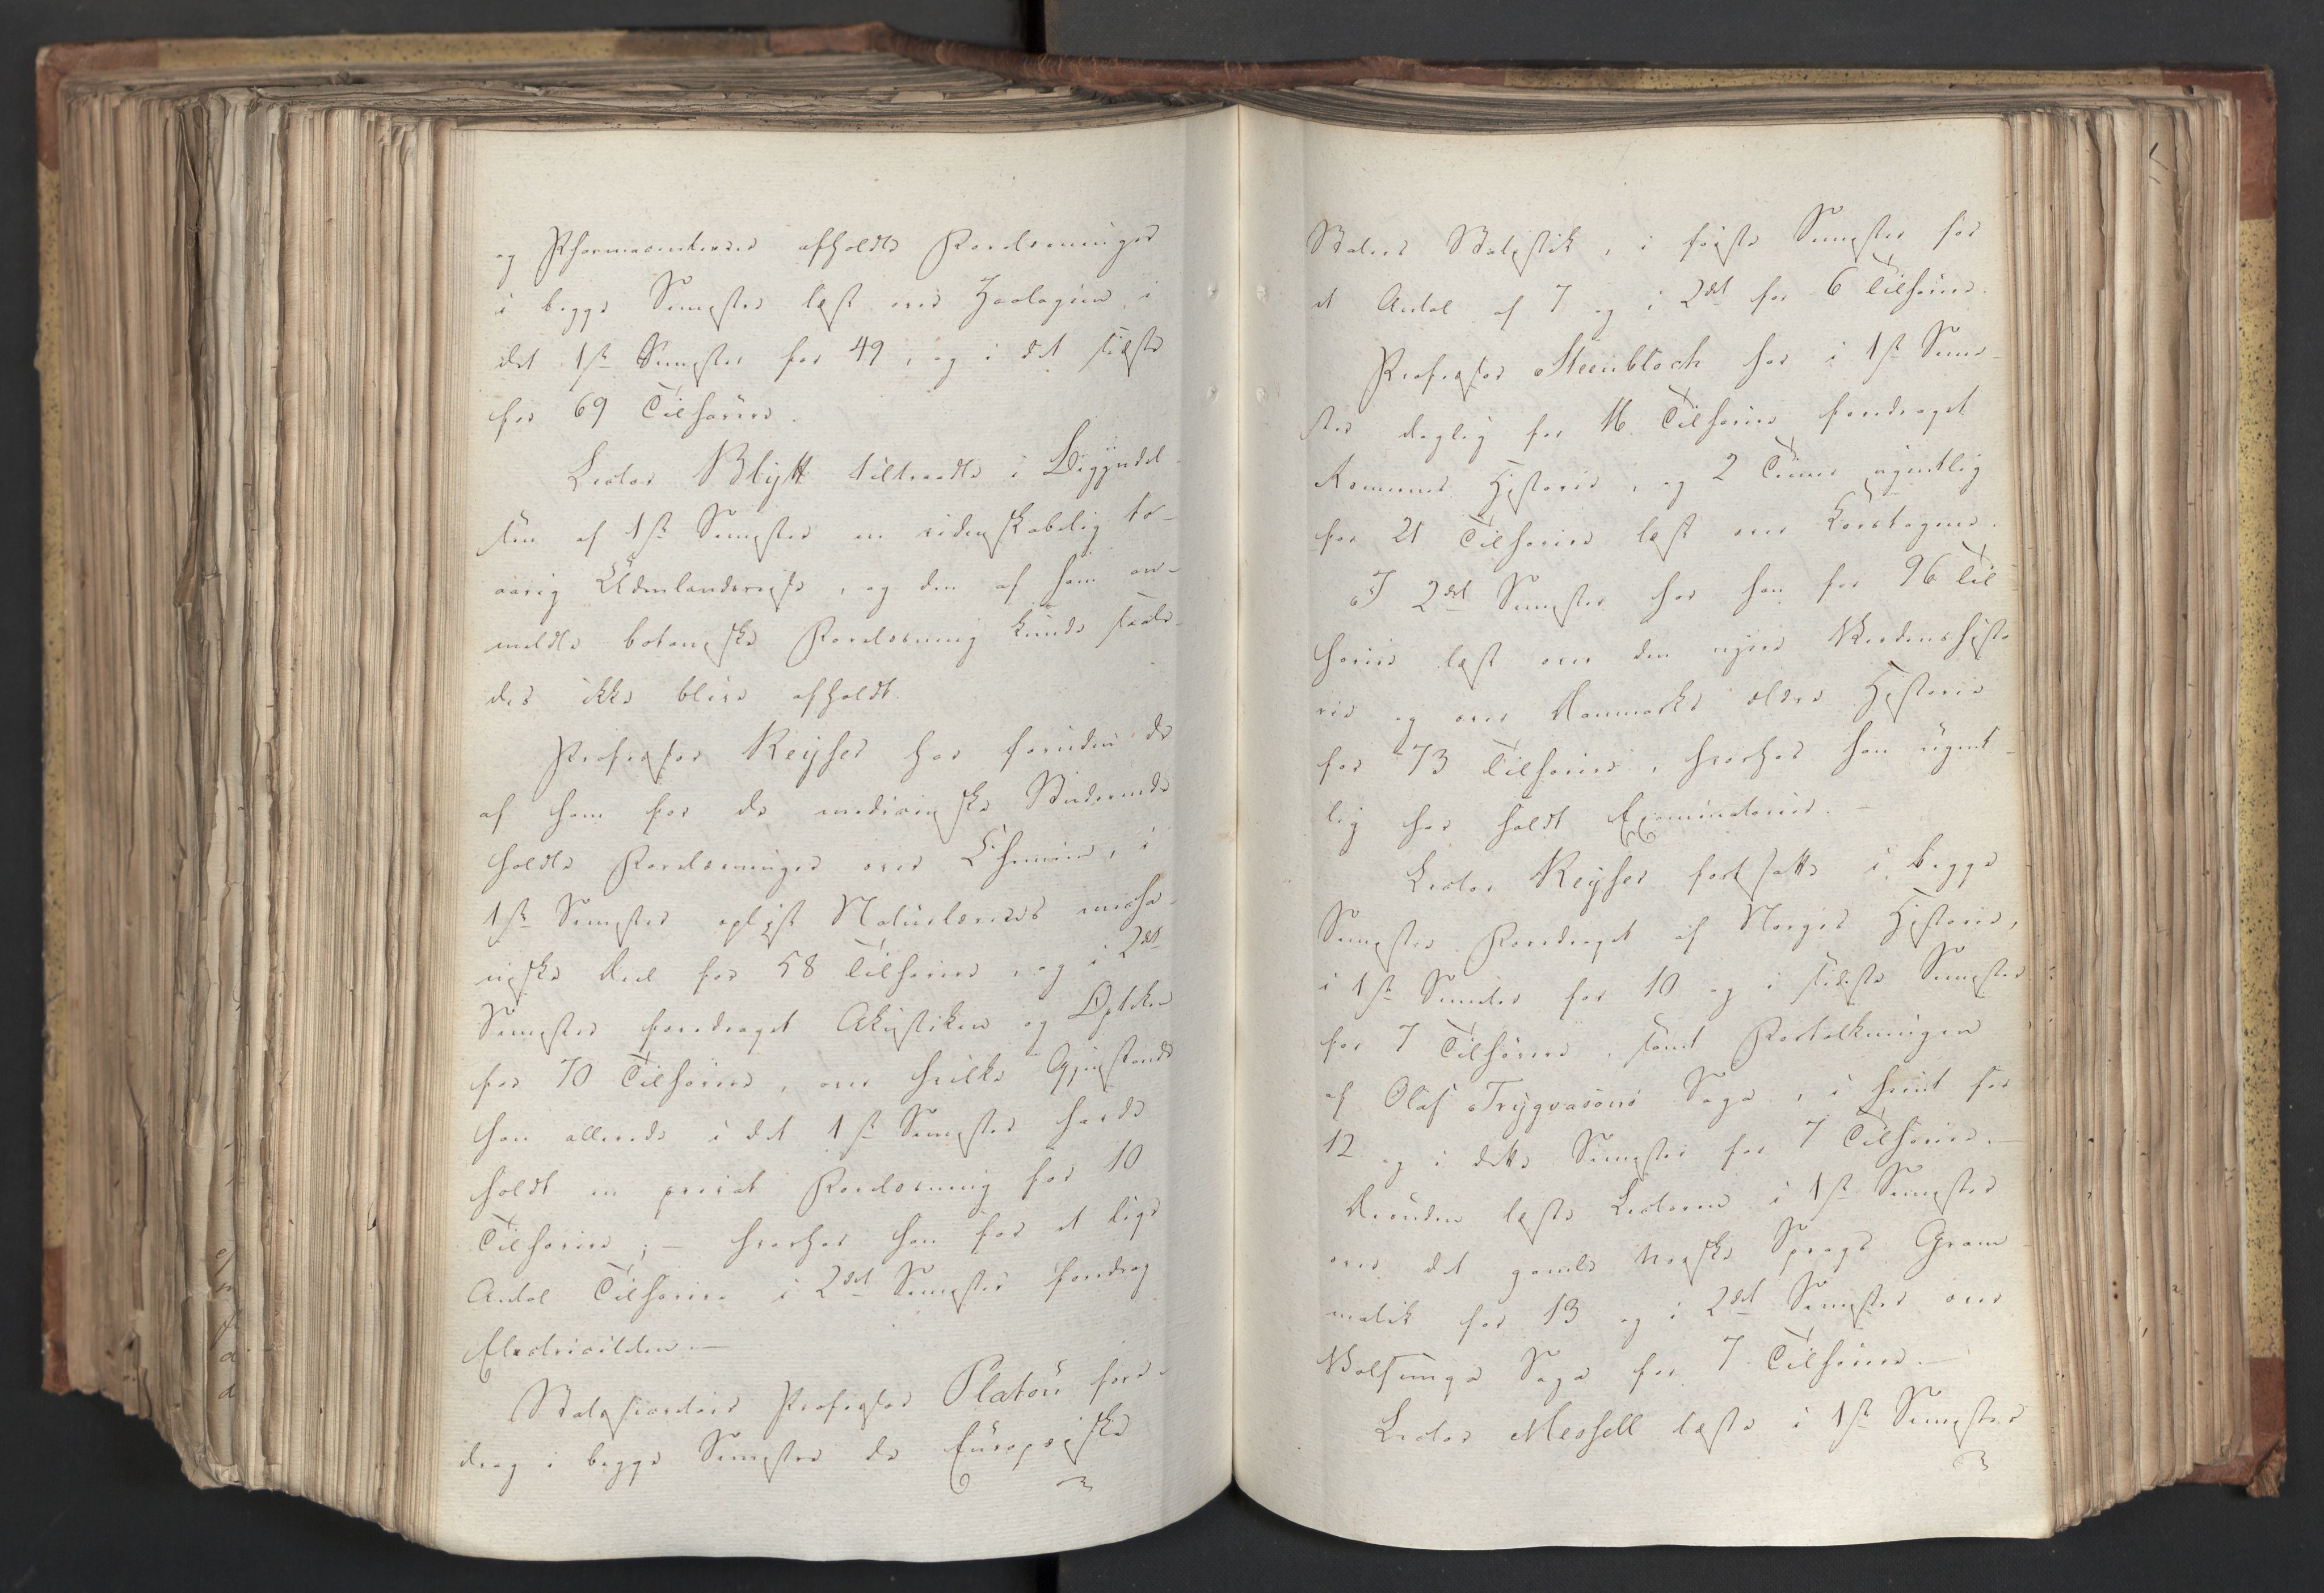 og Pharmaceuterne afholdte Forelæsninger
i begge Semestre læst over Zoologien i
det 1ste Semester for 49, og i det sidste
for 69 Tilhørere.
Lector Blytt tiltraadte i Begyndel-
sen af 1ste Semester en videnskabelig to-
aarig Udenlandsreise, og den af ham an-
meldte botaniske Forelæsning kunde saale-
des ikke blive afholdt.
Professor Keyser har foruden de
af ham for de medicinske Studerende
holdte Forelæsninger over Chemien, i
1ste Semester oplæst Naturlærens mecha-
niske Deel for 58 Tilhørere, og i 2det
Semester foredraget Akustiken og Optiken
for 70 Tilhørere, over hvilke Gjenstande
han allerede i det 1ste Semester havde
holdt en privat Forelæsning for 10
Tilhørere; — hvorhos han for et lige
Antal Tilhørere i 2det Semester foredrog
Electriciteten. —
Statssecretair Professor Platou fore-
drog i begge Semestre de Europæiske
Staters Statistik, i første Semester for
et Antal af 7 og i 2det for 6 Tilhørere.
Professor Steenbloch har i 1ste Seme-
ster daglig for 16 Tilhørere foredraget
Romernes Historie, og 2 Timer ugentlig
for 21 Tilhørere læst over Korstogene.
I 2det Semester har han for 96 Til-
hørere læst over den nyere Verdenshisto
rie og over Danmarks ældre Historie
for 73 Tilhørere, hvorhos han ugent-
lig har holdt Examinatorier. —
Lector Keyser fortsatte i begge
Semestre Foredraget af Norges Historie,
i 1ste Semester for 10 og i sidste Semester
for 7 Tilhørere, samt Fortolkningen
af Olaf Trygvasons Saga, i hiint for
12 og i dette Semester for 7 Tilhørere. —
Desuden læste Lectoren i 1ste Semester
over det gamle norske Sprogs Gram
matik for 13 og i 2det Semester over
Volsunga Saga for 7 Tilhørere. —
Lector Messell læste i 1ste Semester